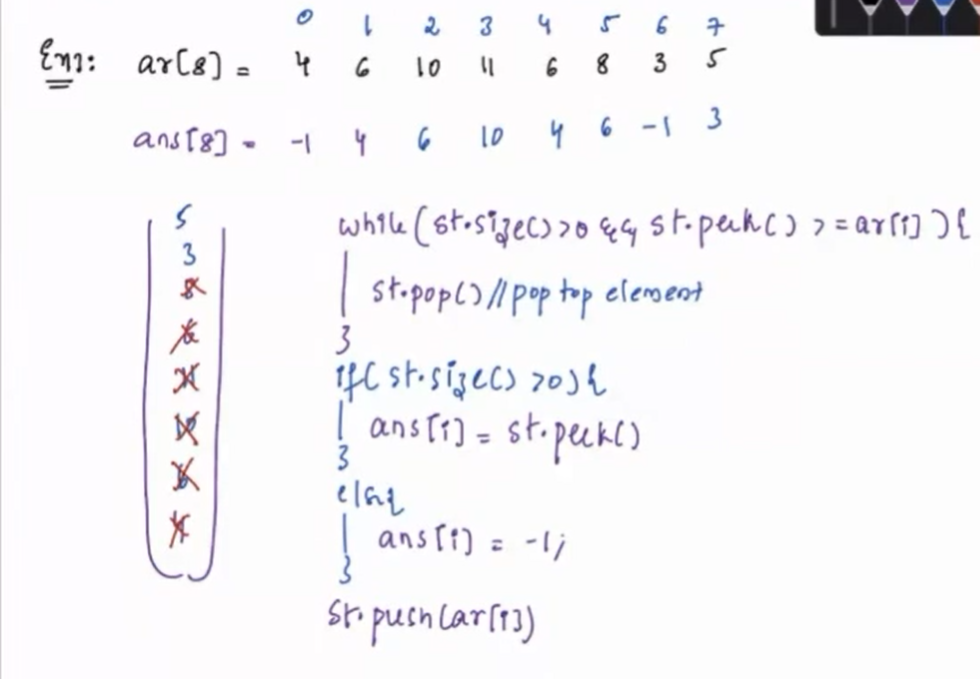 0 1 2 3 4 5 6 7
Ex1: ar[8] = 4 6 10 11 6 8 3 5
ans[8] = -1 4 6 10 4 6 -1 3
5
3
8
6
11
10
6
4
while(st.size()>0 && st.peek() >= ar[i]){
st.pop() //pop top element
}
if(st.size() >0){
ans[i] = st.peek()
}
else{
ans[i] = -1;
}
st.push(ar[i])